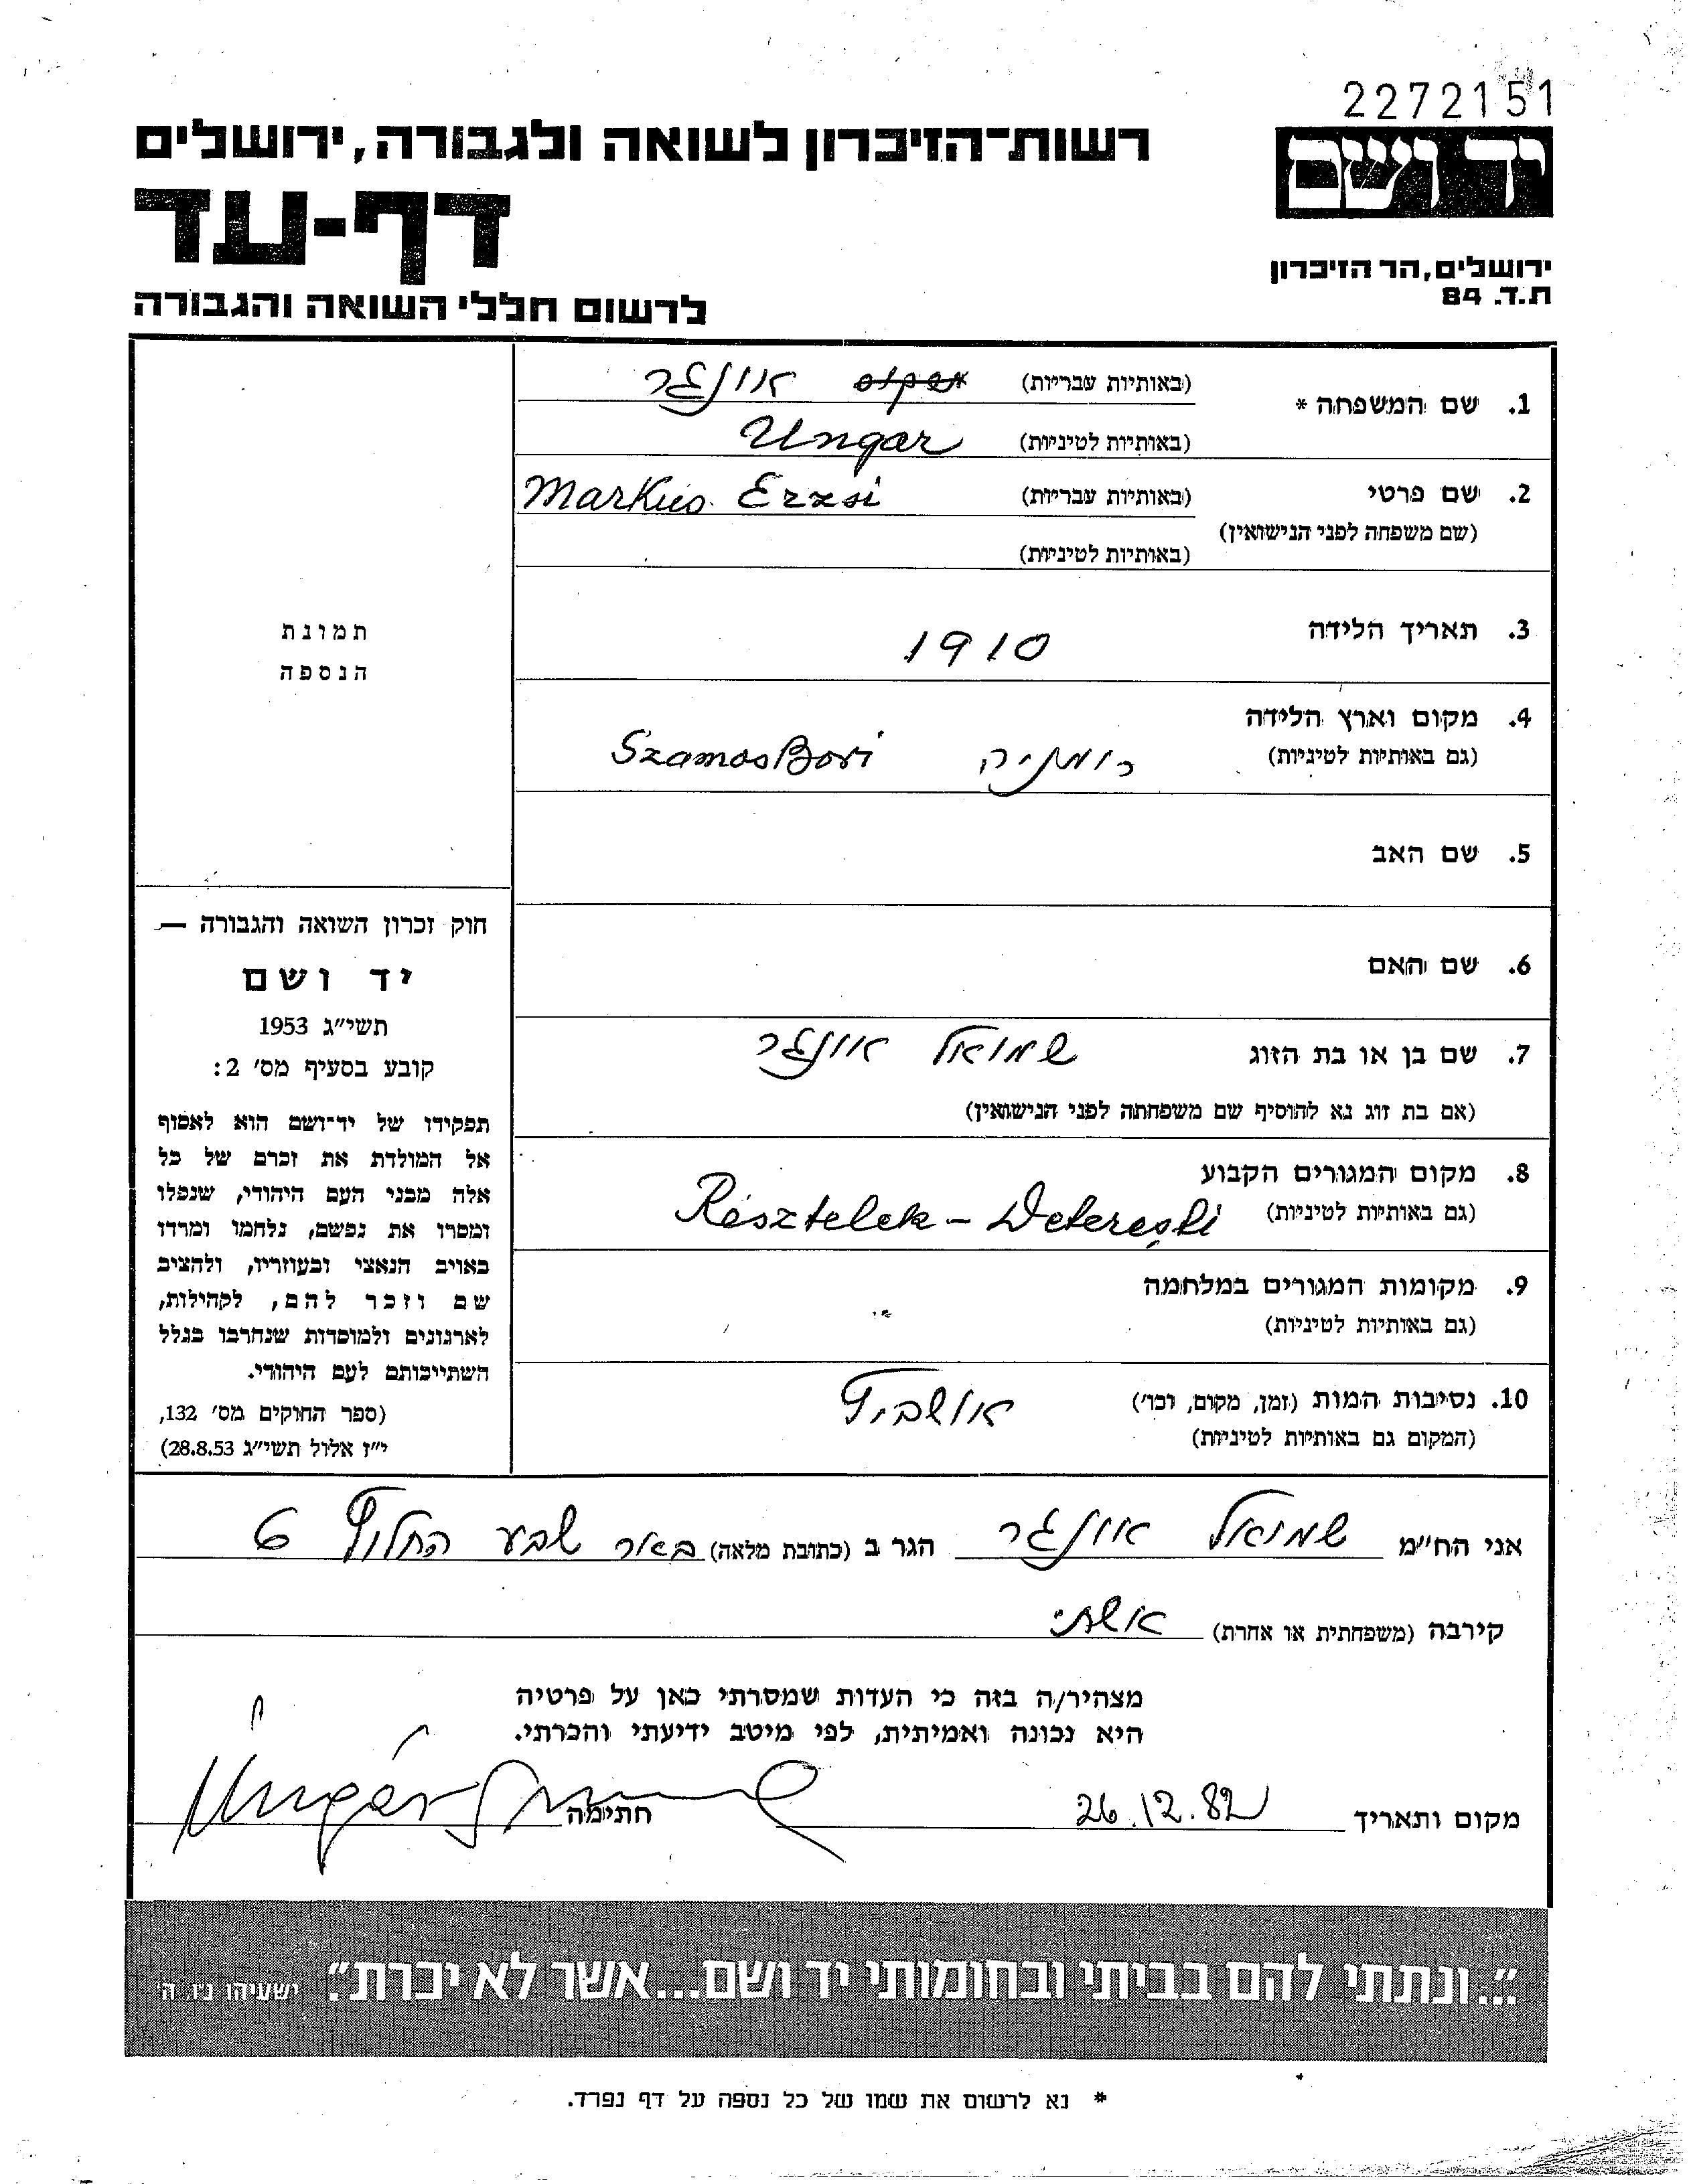 2272151
יד ושם
רשות־הזיכרון לשואה ולגבורה, ירושלים
דף-עד
ירושלים, הר הזיכרון
ת.ד. 84
לרשום חללי השואה והגבורה
1. שם המשפחה * (באותיות עבריות) אונגר
(באותיות לטיניות) Ungar
2. שם פרטי (באותיות עבריות) Markus Erzsi
(שם משפחה לפני הנישואין)
(באותיות לטיניות)
3. תאריך הלידה 1910
4. מקום וארץ הלידה
(גם באותיות לטיניות) רומניה SzamosBori
5. שם האב
6. שם האם
7. שם בן או בת הזוג שמואל אונגר
(אם בת זוג נא להוסיף שם משפחתה לפני הנישואין)
8. מקום המגורים הקבוע
(גם באותיות לטיניות) Résztelek -
9. מקומות המגורים במלחמה
(גם באותיות לטיניות)
10. נסיבות המות (זמן, מקום, וכו') אושביץ
(המקום גם באותיות לטיניות)
תמונת
הנספה
חוק זכרון השואה והגבורה —
יד ושם
תשי״ג 1953
קובע בסעיף מס׳ 2:
תפקידו של יד־ושם הוא לאסוף
אל המולדת את זכרם של כל
אלה מבני העם היהודי, שנפלו
ומסרו את נפשם, נלחמו ומרדו
באויב הנאצי ובעוזריו, ולהציב
שם וזכר להם, לקהילות,
לארגונים ולמוסדות שנחרבו בגלל
השתייכותם לעם היהודי.
(ספר החוקים מס׳ 132,
י״ז אלול תשי״ג 28.8.53)
אני הח״מ שמואל אונגר הגר ב (כתובת מלאה) באר שבע החלוץ 6
קירבה (משפחתית או אחרת) אשתי
מצהיר/ה בזה כי העדות שמסרתי כאן על פרטיה
היא נכונה ואמיתית, לפי מיטב ידיעתי והכרתי.
מקום ותאריך 26.12.82 חתימה Ungár
״...ונתתי להם בביתי ובחומותי יד ושם...אשר לא יכרת״. ישעיהו נ״ו, ה׳
* נא לרשום את שמו של כל נספה על דף נפרד.